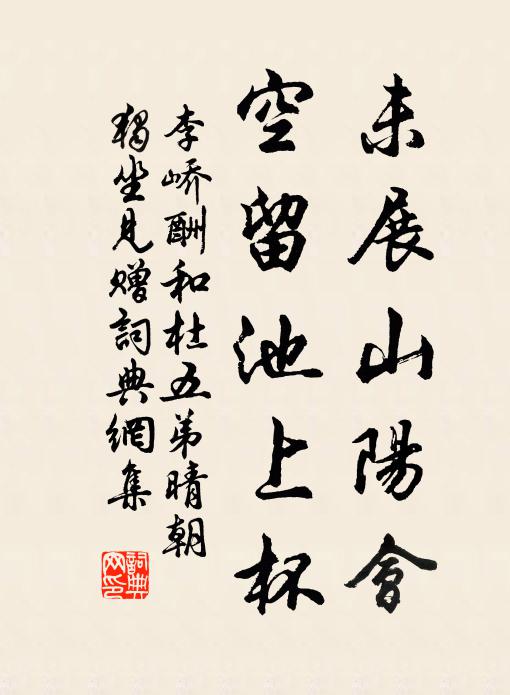 未展山陽會
空留池上杯
李嶠酬和杜五弟晴朝
獨坐見贈詞典網集
詞典
网印